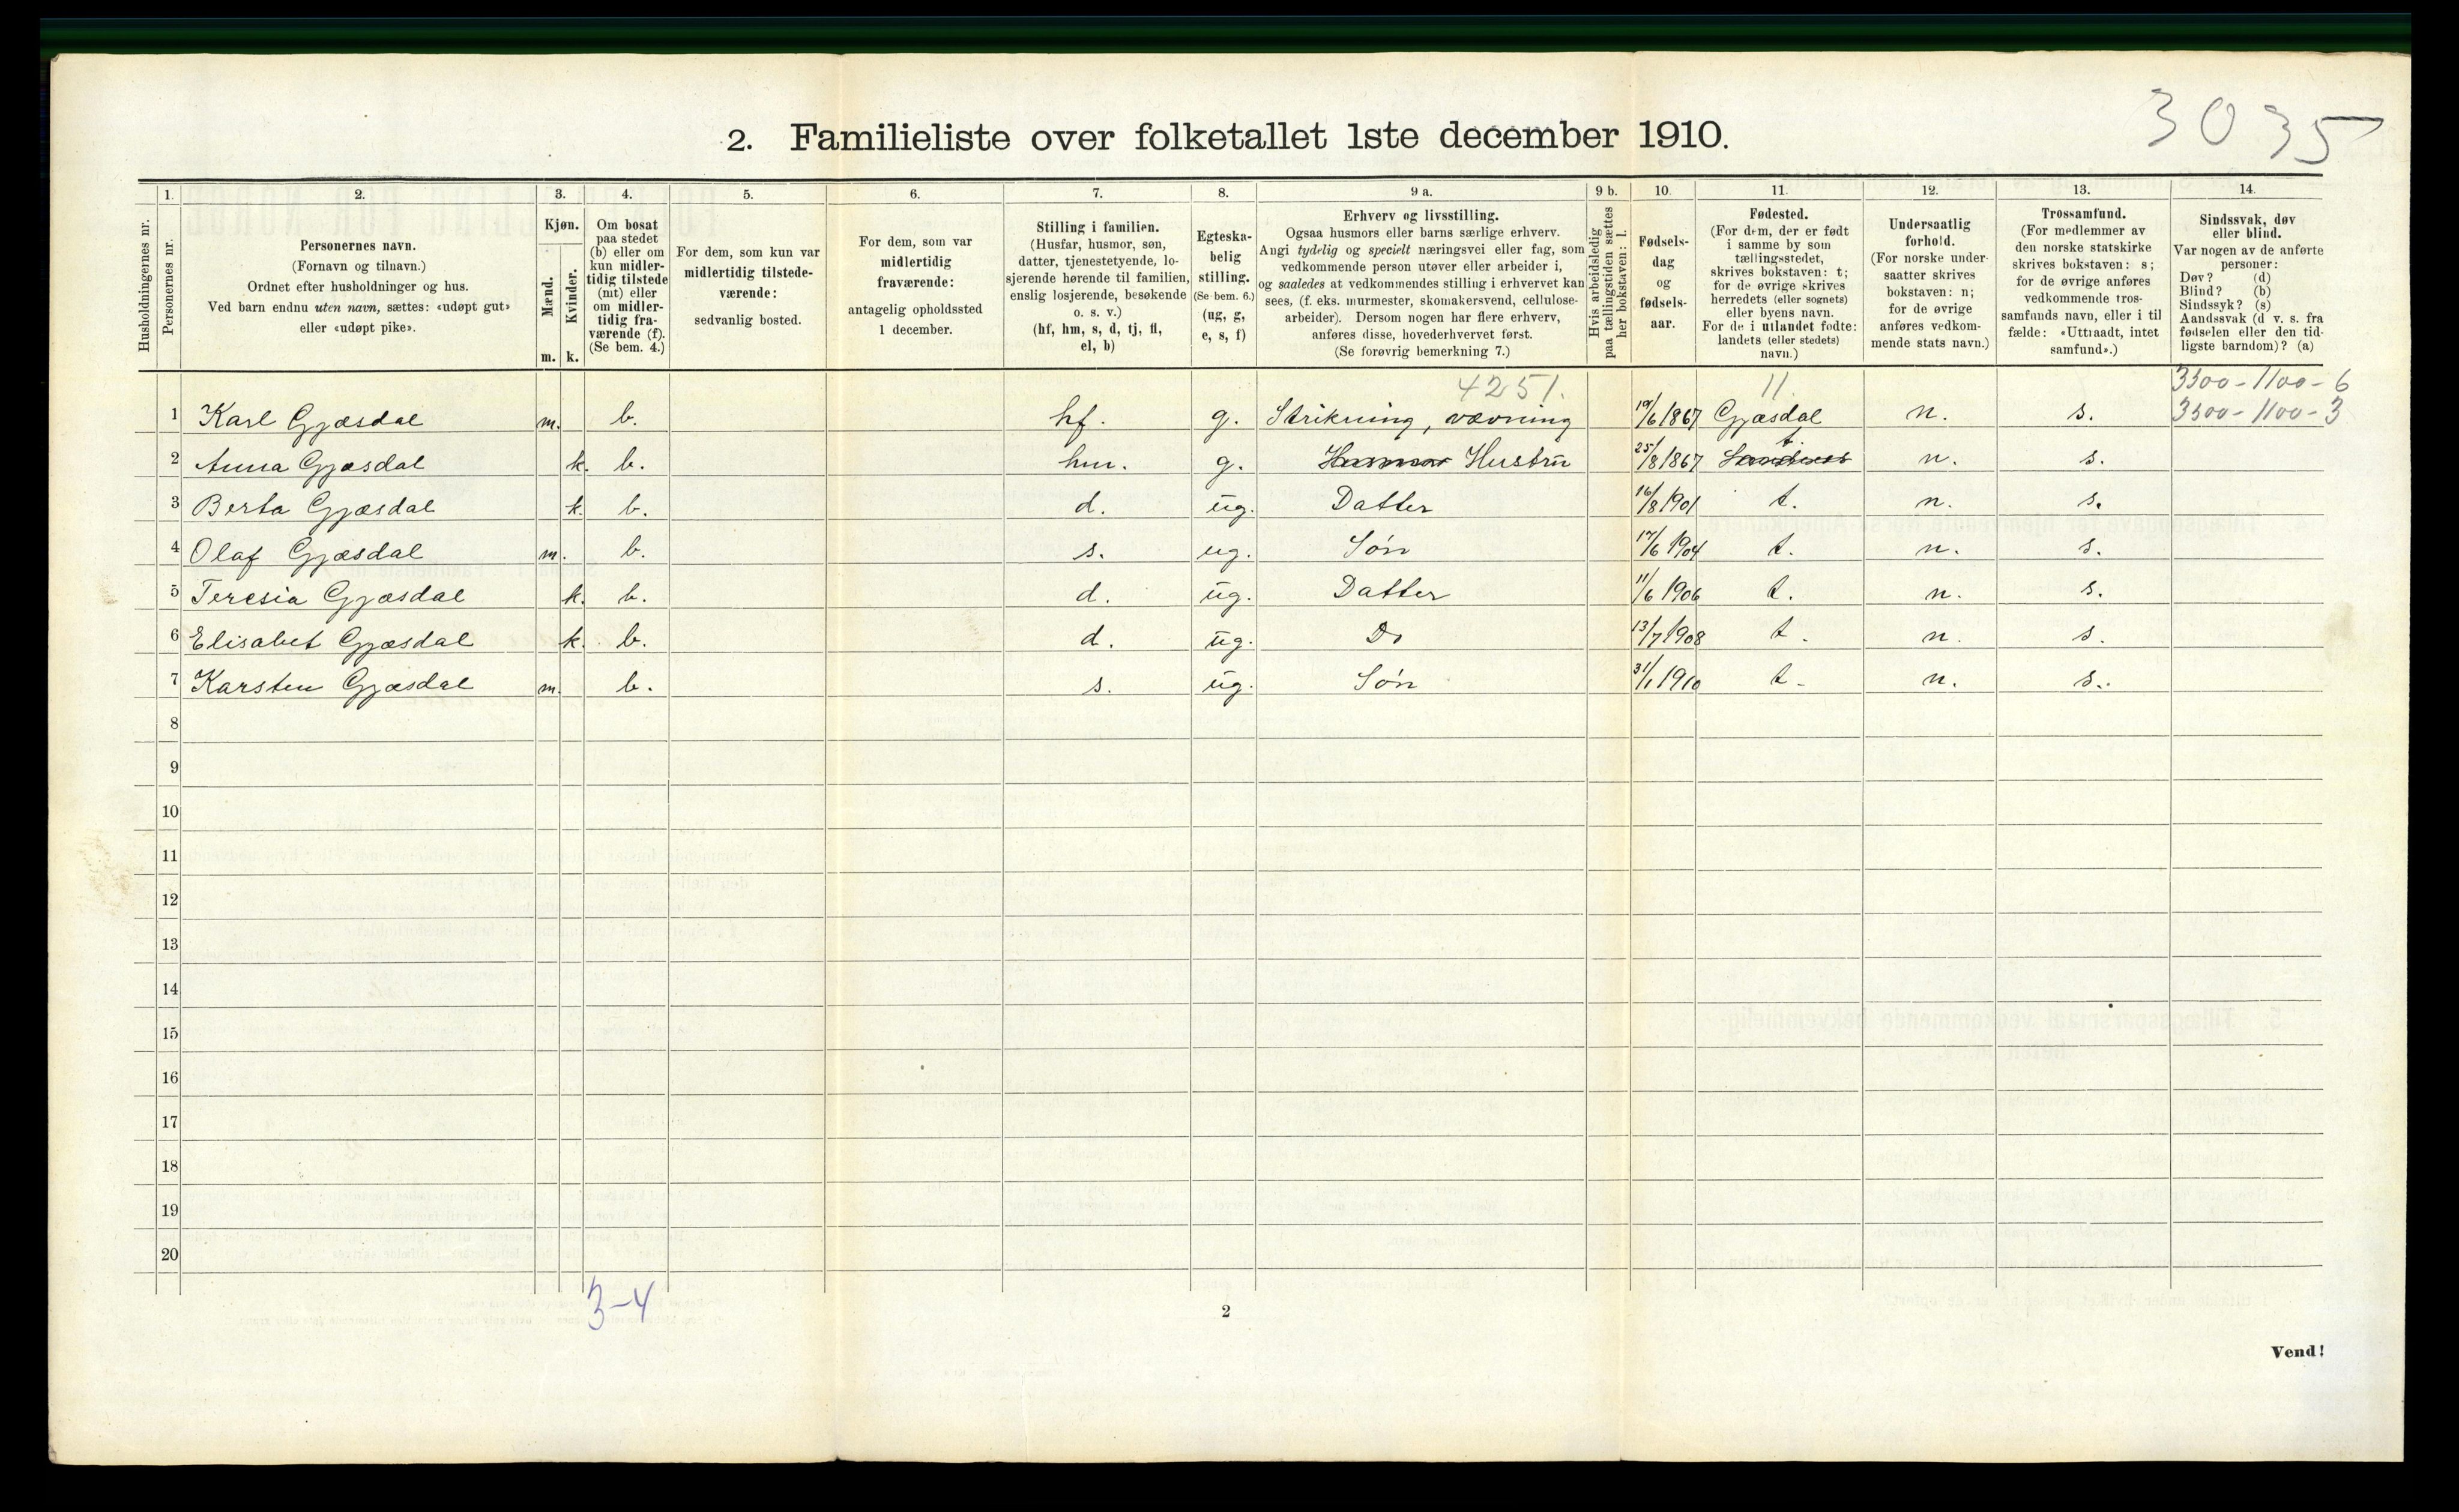 3035
2. Familieliste over folketallet 1ste december 1910.
Husholdningernes nr.
1.
Personernes nr.
2.
Personernes navn.
(Fornavn og tilnavn.)
Ordnet efter husholdninger og hus.
Ved barn endnu uten navn, sættes: «udøpt gut»
eller «udøpt pike».
3.
Kjøn.
Mænd.
Kvinder.
m. k.
4.
Om bosat
paa stedet
(b) eller om
kun midler-
tidig tilstede
(mt) eller
om midler-
tidig fra-
værende (f).
(Se bem. 4.)
5.
For dem, som kun var
midlertidig tilstede-
værende:
sedvanlig bosted.
6.
For dem, som var
midlertidig
fraværende:
antagelig opholdssted
1 december.
7.
Stilling i familien.
(Husfar, husmor, søn,
datter, tjenestetyende, lo-
sjerende hørende til familien,
enslig losjerende, besøkende
o. s. v.)
(hf, hm, s, d, tj, fl,
el, b)
8.
Egteska-
belig
stilling.
(Se bem. 6.)
(ug, g,
e, s, f)
9 a.
Erhverv og livsstilling.
Ogsaa husmors eller barns særlige erhverv.
Angi tydelig og specielt næringsvei eller fag, som
vedkommende person utøver eller arbeider i,
og saaledes at vedkommendes stilling i erhvervet kan
sees, (f. eks. murmester, skomakersvend, cellulose-
arbeider). Dersom nogen har flere erhverv,
anføres disse, hovederhvervet først.
(Se forøvrig bemerkning 7.)
9 b.
Hvis arbeidsledig
paa tællingstiden sættes
her bokstaven: l.
10.
Fødsels-
dag
og
fødsels-
aar.
11.
Fødested.
(For dem, der er født
i samme by som
tællingsstedet,
skrives bokstaven: t;
for de øvrige skrives
herredets (eller sognets)
eller byens navn.
For de i utlandet fødte:
landets (eller stedets)
navn.)
12.
Undersaatlig
forhold.
(For norske under-
saatter skrives
bokstaven: n;
for de øvrige
anføres vedkom-
mende stats navn.)
13.
Trossamfund.
(For medlemmer av
den norske statskirke
skrives bokstaven: s;
for de øvrige anføres
vedkommende tros-
samfunds navn, eller i til
fælde: «Uttraadt, intet
samfund».)
14.
Sindssvak, døv
eller blind.
Var nogen av de anførte
personer:
Døv? (d)
Blind? (b)
Sindssyk? (s)
Aandssvak (d v. s. fra
fødselen eller den tid-
ligste barndom)? (a)
4251. 11. 3500-1100-6
1 Karl Gjæsdal m. b. hf. g. Strikning, vævning 19/6 1867 Gjæsdal n. s. 3500-1100-3
2 Anna Gjæsdal k. b. hm. g. Husmor Hustru 25/8 1867 Sandnes t. n. s.
3 Berta Gjæsdal k. b. d. ug. Datter 16/8 1901 t. n. s.
4 Olaf Gjæsdal m. b. s. ug. Søn 17/6 1904 t. n. s.
5 Teresia Gjæsdal k. b. d. ug. Datter 11/6 1906 t. n. s.
6 Elisabet Gjæsdal k. b. d. ug. Do 13/7 1908 t. n. s.
7 Karsten Gjæsdal m. b. s. ug. Søn 31/1 1910 t. n. s.
8
9
10
11
12
13
14
15
16
17
18
19
20
3-4
2
Vend!